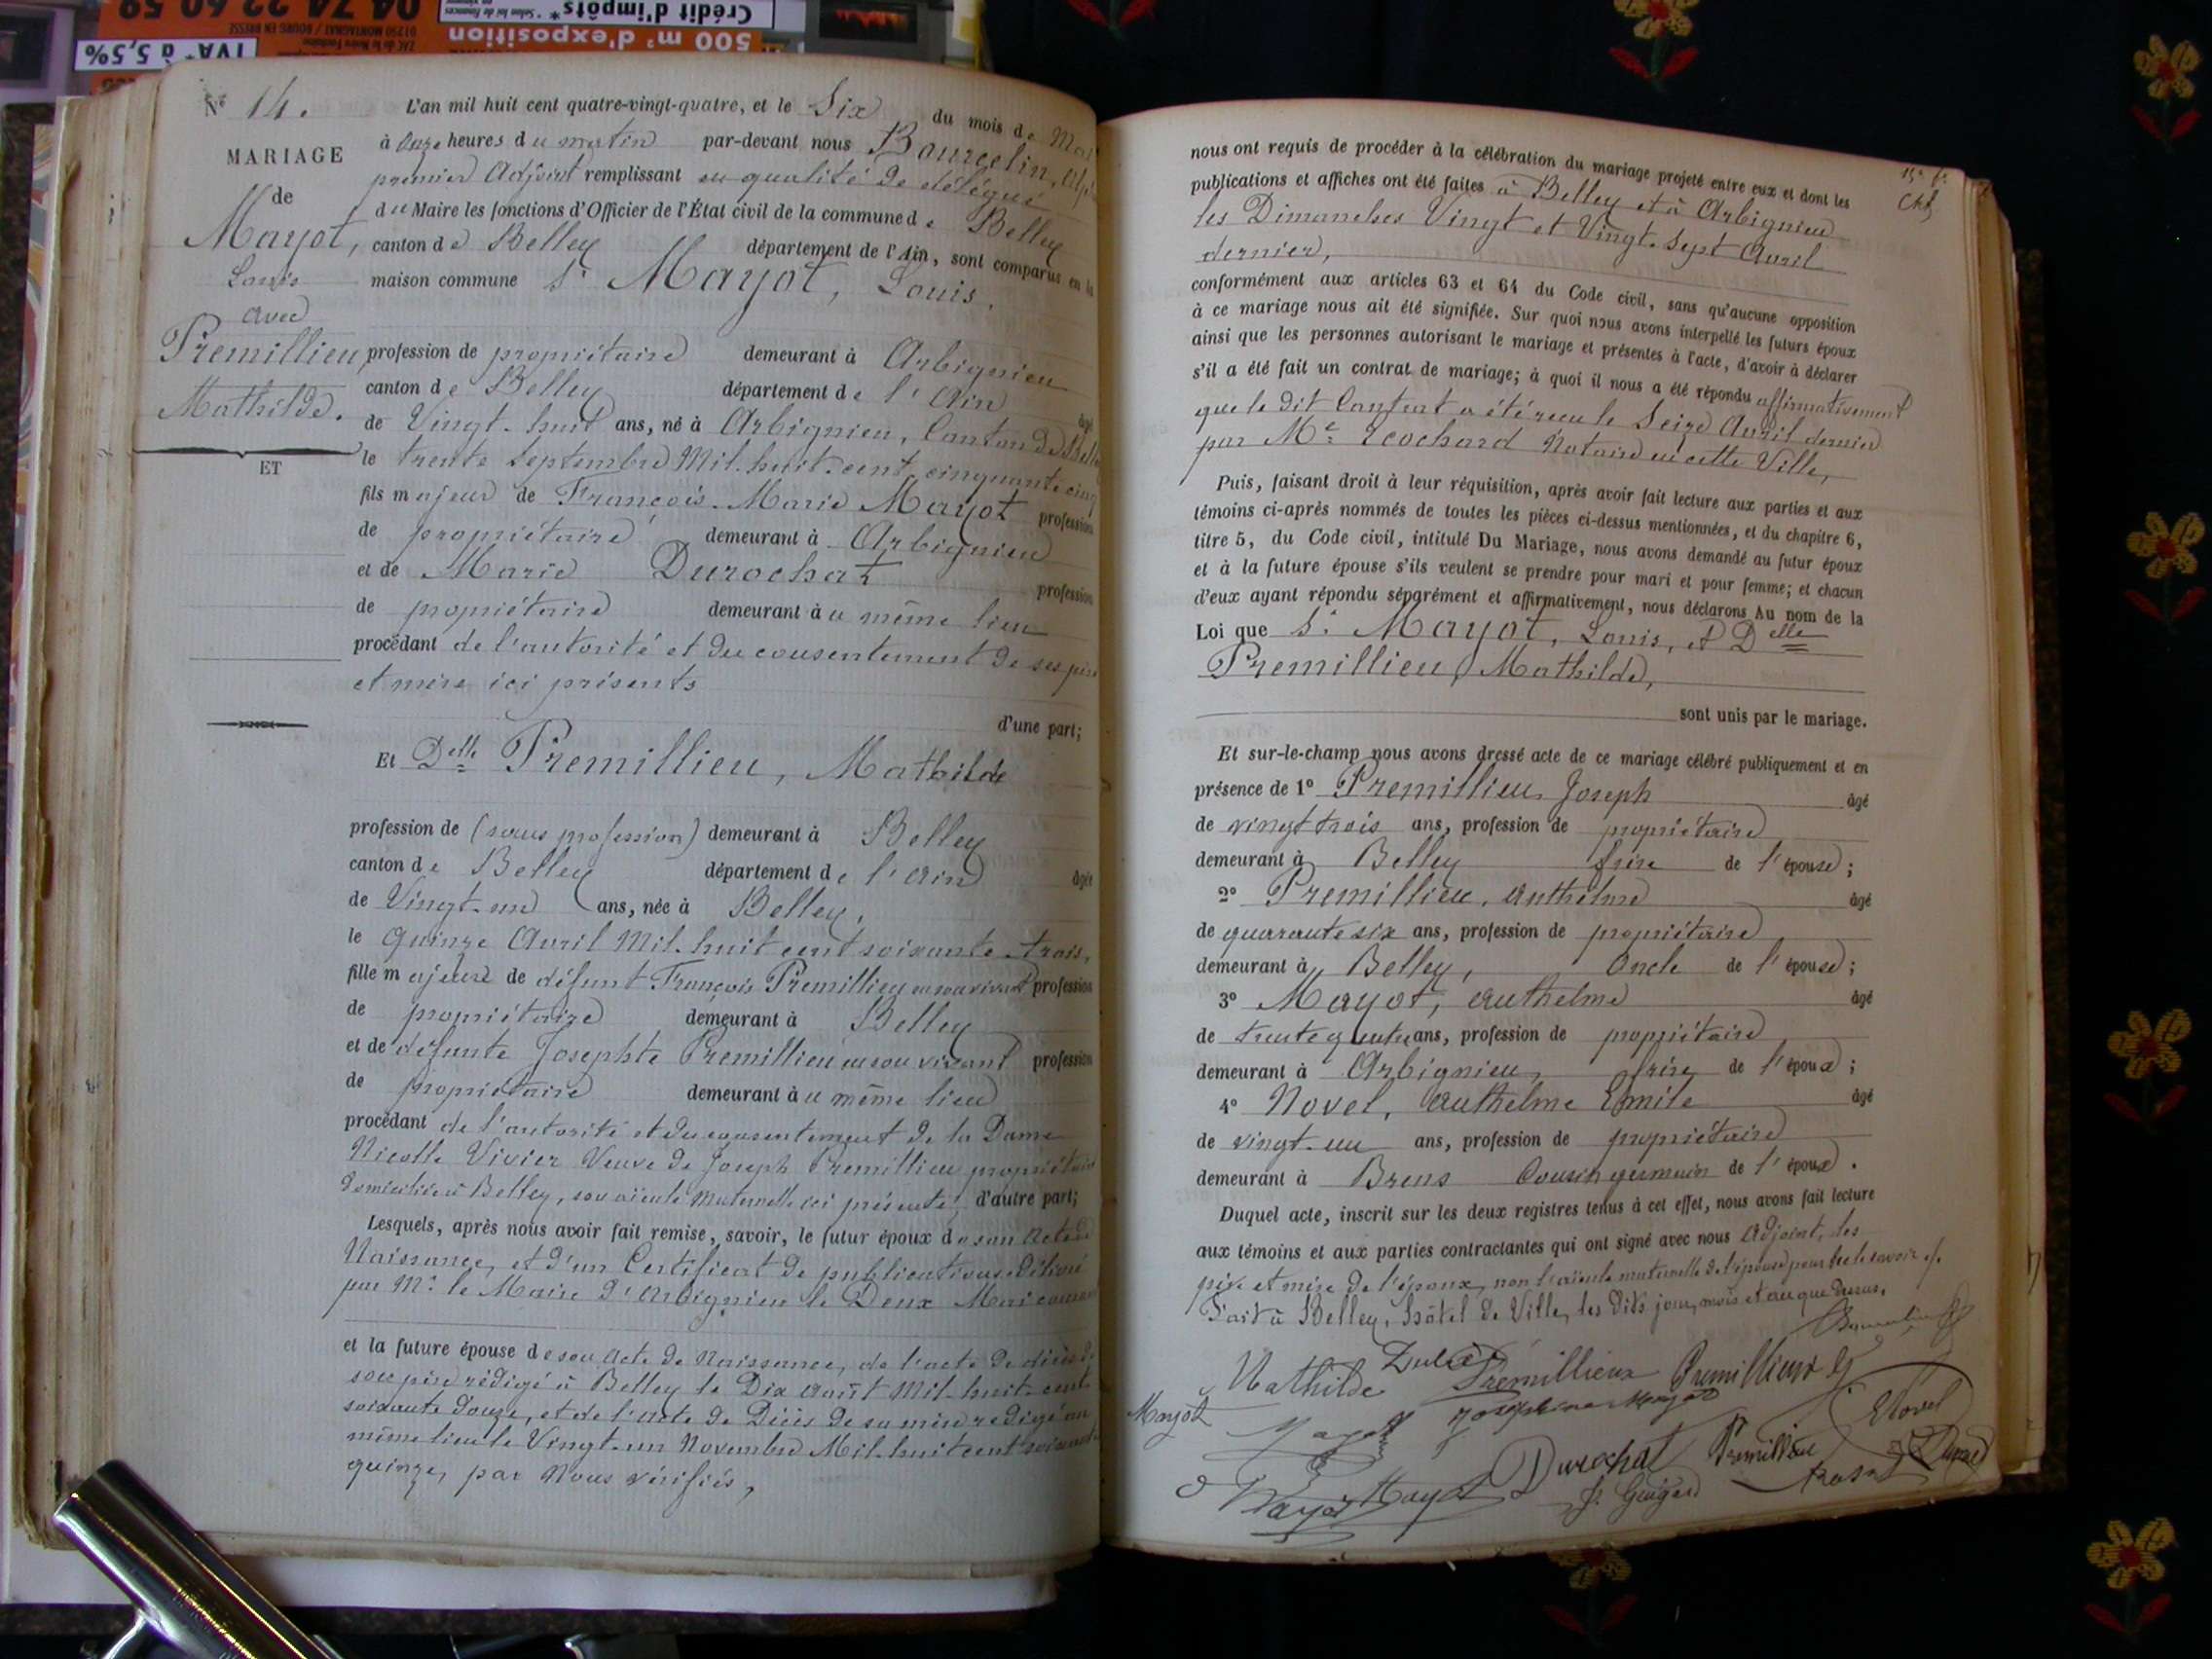 04 74 22 60 59
ZAC de la Noire Fontaine
01250 MONTAGNAT / BOURG EN BRESSE
TVA* à 5,5%
Crédit d'impôts*
* Selon loi de finances
500 m² d'exposition
N° 14.
MARIAGE
de
Mayot,
Louis
avec
Premillieu,
Mathilde.
ET
L'an mil huit cent quatre-vingt-quatre, et le Six du mois de Mai
à onze heures du matin par-devant nous Bourcelin,
premier Adjoint remplissant en qualité de délégué
du Maire les fonctions d'Officier de l'État civil de la commune de Belley
canton de Belley département de l'Ain, sont comparus en la
maison commune Sr Mayot, Louis,
profession de propriétaire demeurant à Arbignieu
canton de Belley département de l'Ain âgé
de Vingt-huit ans, né à Arbignieu, Canton de Belley
le trente Septembre Mil-huit-cent cinquante cinq
fils majeur de François-Marie Mayot profession
de propriétaire demeurant à Arbignieu
et de Marie Durochat profession
de propriétaire demeurant au même lieu
procédant de l'autorité et du consentement de ses père
et mère ici présents
d'une part;
Et Delle Premillieu, Mathilde
profession de (sans profession) demeurant à Belley
canton de Belley département de l'Ain âgée
de Vingt-un ans, née à Belley,
le quinze Avril Mil-huit cent soixante-trois,
fille majeure de défunt François Premillieu en son vivant profession
de propriétaire demeurant à Belley
et de défunte Josephte Premillieu en son vivant profession
de propriétaire demeurant au même lieu
procédant de l'autorité et du consentement de la Dame
Nicolle Vivier Veuve de Joseph Premillieu propriétaire
domiciliée à Belley, son aïeule maternelle ici présente, d'autre part;
Lesquels, après nous avoir fait remise, savoir, le futur époux de son acte de
Naissance, et d'un Certificat de publications délivré
par Mr le Maire d'Arbignieu le Deux Mai courant
et la future épouse de son acte de Naissance, de l'acte de décès de
son père rédigé à Belley le Dix août Mil-huit-cent
soixante douze, et de l'acte de Décès de sa mère rédigé au
même lieu le Vingt-un Novembre Mil-huit cent soixante
quinze, par Nous vérifiés,
nous ont requis de procéder à la célébration du mariage projeté entre eux et dont les
publications et affiches ont été faites à Belley et à Arbignieu
les Dimanches Vingt et Vingt-Sept Avril
dernier,
conformément aux articles 63 et 64 du Code civil, sans qu'aucune opposition
à ce mariage nous ait été signifiée. Sur quoi nous avons interpellé les futurs époux
ainsi que les personnes autorisant le mariage et présentes à l'acte, d'avoir à déclarer
s'il a été fait un contrat de mariage; à quoi il nous a été répondu affirmativement
que le dit Contrat a été reçu le Seize Avril dernier
par Me Ecochard Notaire en cette Ville,
Puis, faisant droit à leur réquisition, après avoir fait lecture aux parties et aux
témoins ci-après nommés de toutes les pièces ci-dessus mentionnées, et du chapitre 6,
titre 5, du Code civil, intitulé Du Mariage, nous avons demandé au futur époux
et à la future épouse s'ils veulent se prendre pour mari et pour femme; et chacun
d'eux ayant répondu séparément et affirmativement, nous déclarons Au nom de la
Loi que Sr Mayot, Louis, et Delle
Premillieu, Mathilde,
sont unis par le mariage.
Et sur-le-champ nous avons dressé acte de ce mariage célébré publiquement et en
présence de 1° Premillieu Joseph âgé
de vingt trois ans, profession de propriétaire
demeurant à Belley frère de l'épouse;
2° Premillieu, Anthelme âgé
de quarante six ans, profession de propriétaire
demeurant à Belley, Oncle de l'épouse;
3° Mayot, Anthelme âgé
de trente quatre ans, profession de propriétaire
demeurant à Arbignieu, frère de l'époux;
4° Novel, Anthelme Emile âgé
de vingt-un ans, profession de propriétaire
demeurant à Brens Cousin germain de l'époux.
Duquel acte, inscrit sur les deux registres tenus à cet effet, nous avons fait lecture
aux témoins et aux parties contractantes qui ont signé avec nous Adjoint, les
père et mère de l'époux, non l'aïeule maternelle de l'épouse pour ne le savoir
Fait à Belley, hôtel de Ville, les dits jour, mois et an que dessus.
Mathilde Premillieux Premillieux
Mayot Mayot Josephine Mayot Novel
Mayot Mayot Durochat Premillieu